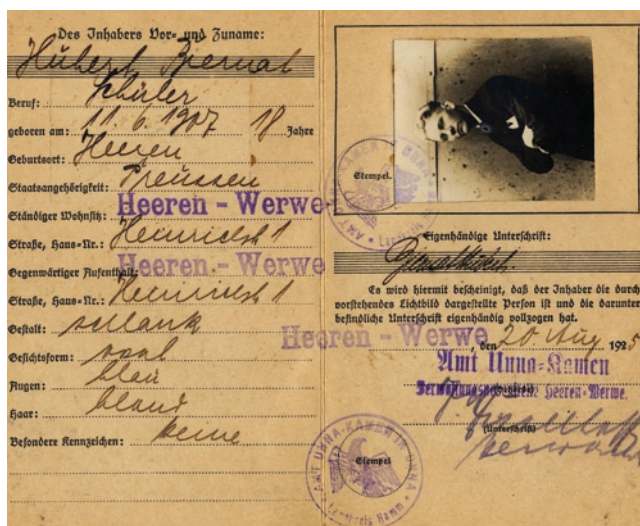 Des Inhabers Vor- und Zuname:
Hubert Biernat
Beruf: Schüler
geboren am: 11. 6. 1907 18 Jahre
Geburtsort: Heeren
Staatsangehörigkeit: Preussen
Ständiger Wohnsitz: Heeren - Werwe
Straße, Haus-Nr.: Heinrichst 1
Gegenwärtiger Aufenthalt: Heeren - Werwe
Straße, Haus-Nr.: Heinrichst 1
Gestalt: schlank
Gesichtsform: oval
Augen: blau
Haar: blond
Besondere Kennzeichen: keine
Stempel.
Eigenhändige Unterschrift:
Es wird hiermit bescheinigt, daß der Inhaber die durch
vorstehendes Lichtbild dargestellte Person ist und die darunter
befindliche Unterschrift eigenhändig vollzogen hat.
Heeren - Werwe, den 20 Aug 1925
Amt Unna-Kamen
Heeren-Werwe.
(Unterschrift)
Stempel
AMT UNNA-KAMEN IN UNNA
Landkreis Hamm